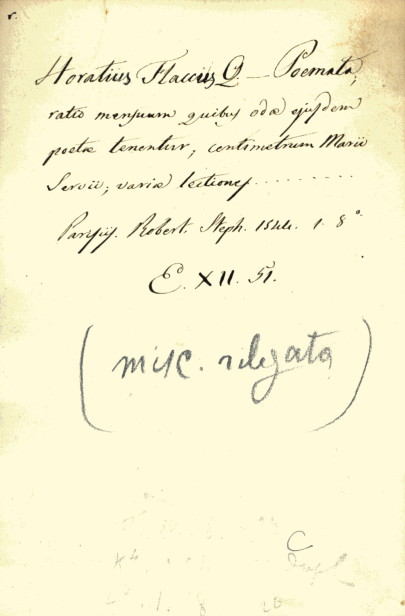 Horatius Flaccus Q. — Poemata;
ratio mensuum quibus odæ ejusdem
poetæ tenentur; centimetrum Marii
Servii; variæ lectiones..........
Parisiis. Robert. Steph. 1544. 1. 8º
E. XII. 51.
(misc. rilegata)
C